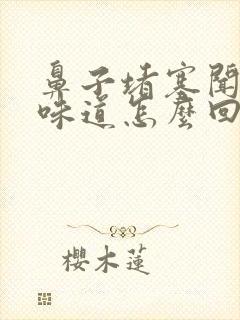 鼻子堵塞聞
味道怎麼回
櫻木蓮